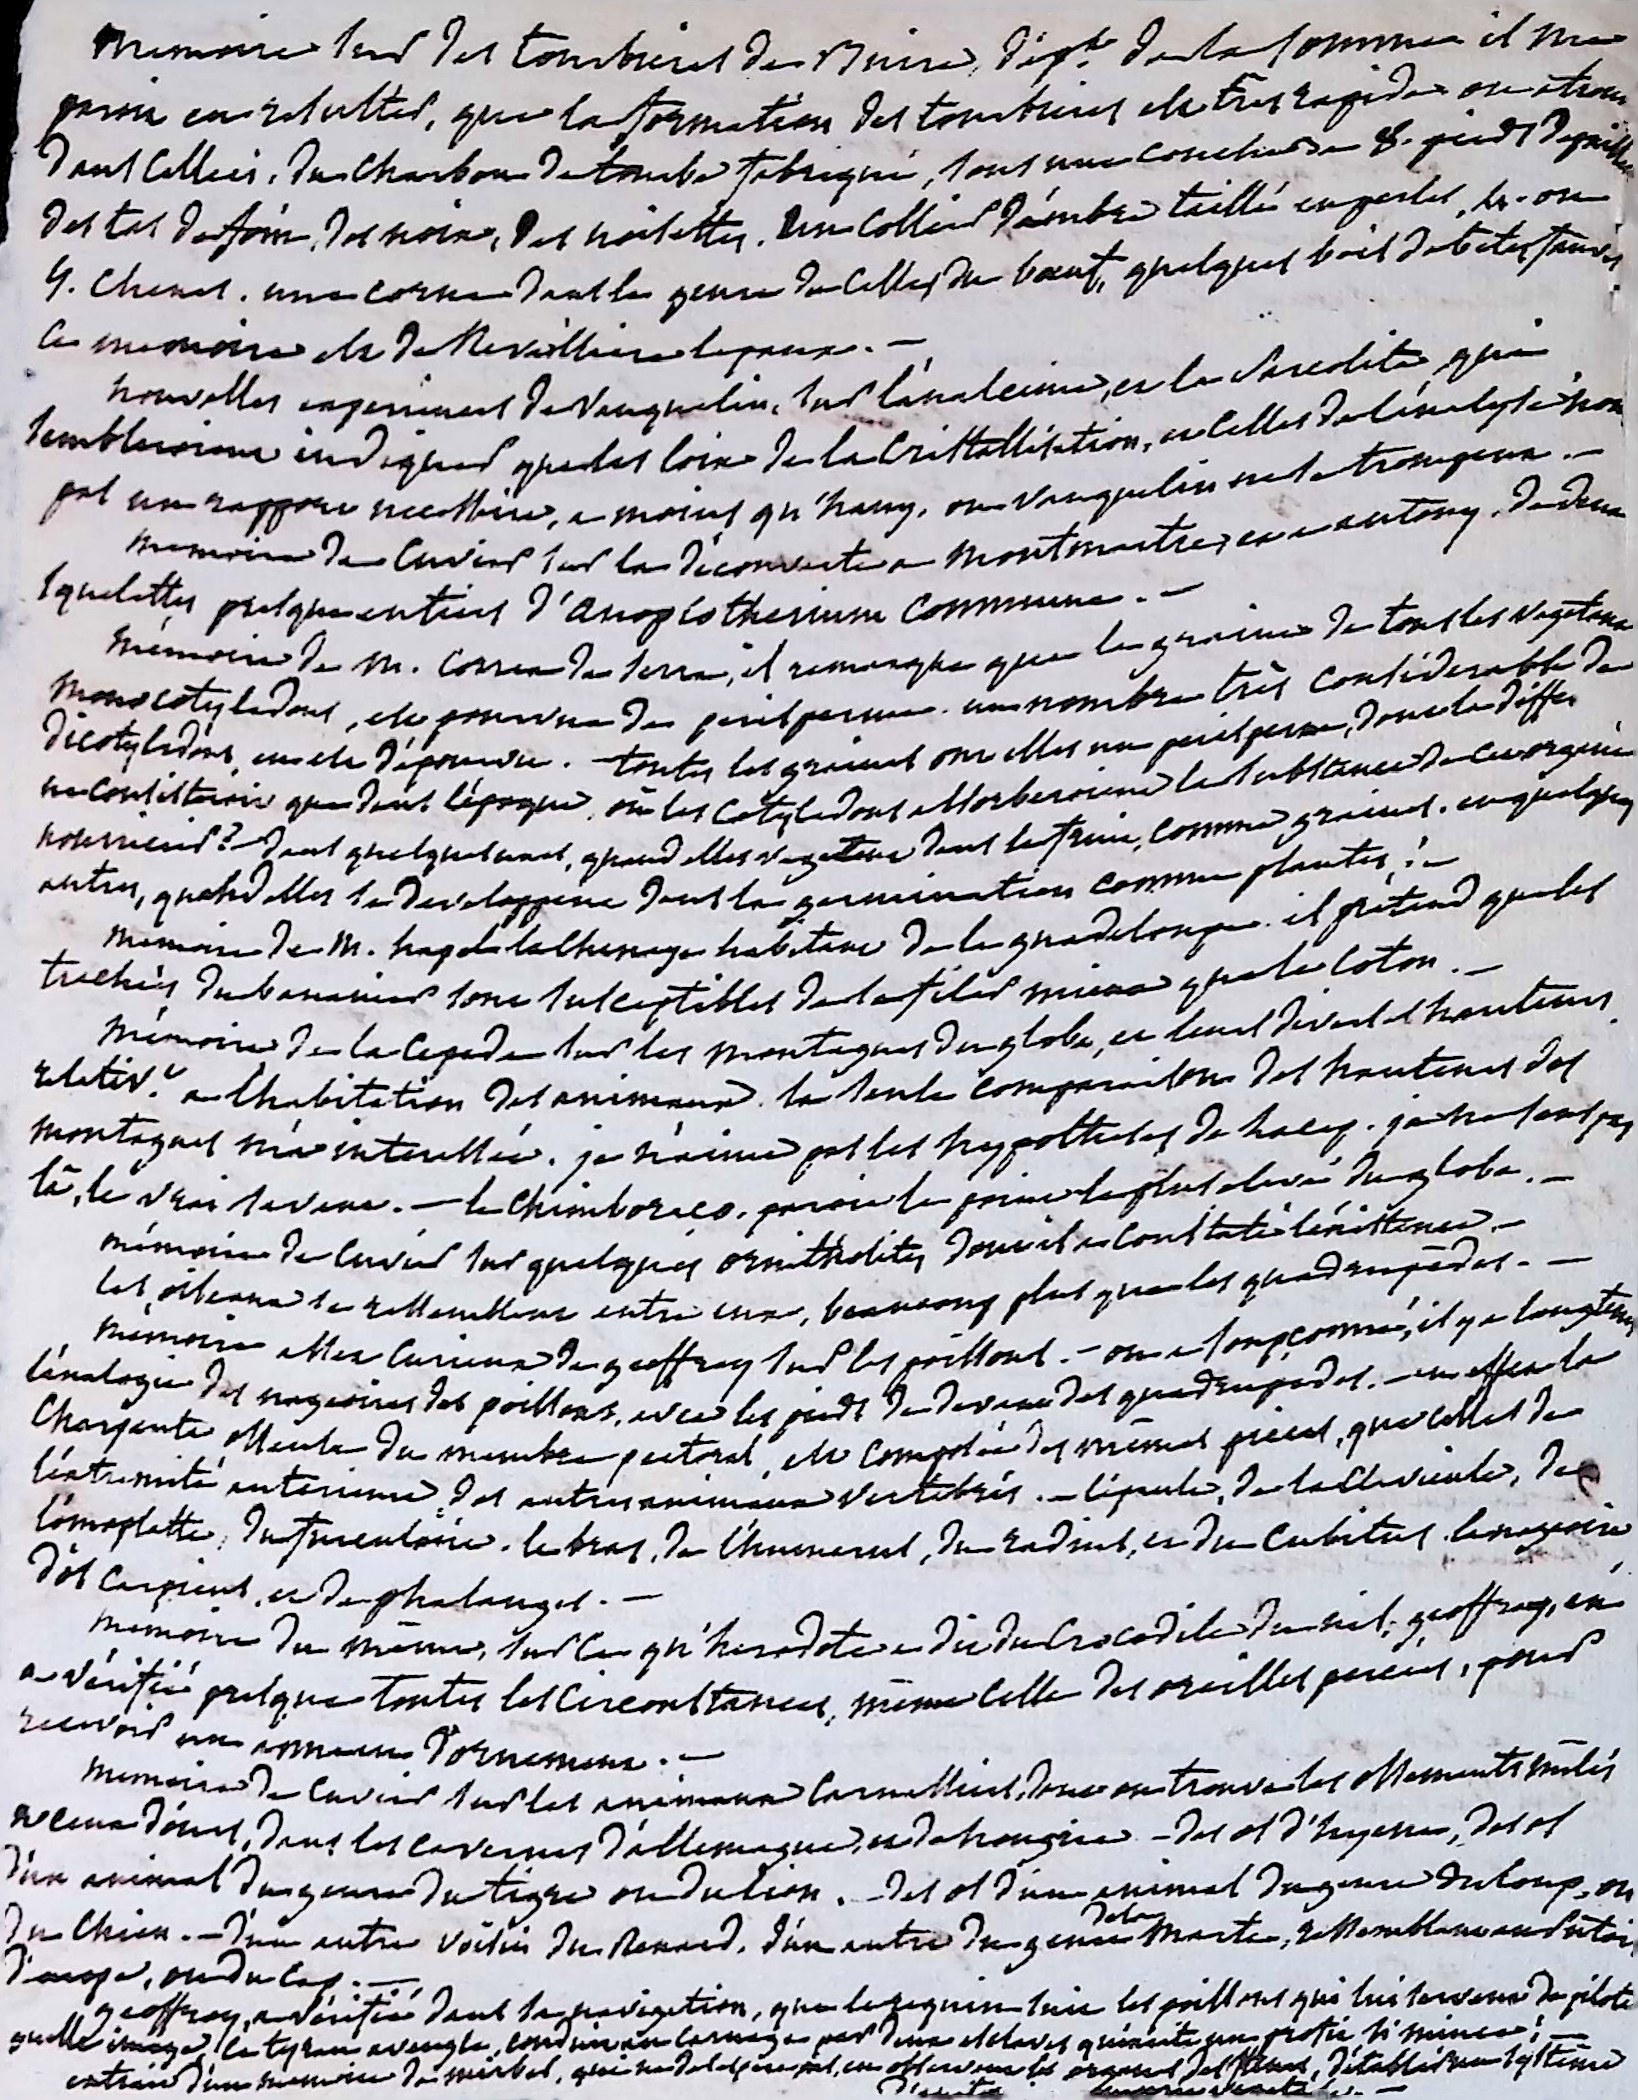 Memoire sur des tourbieres de Buire, dépt. de la somme il me
paroit en resulter, que la formation des tourbieres est très rapide on a trouvé
dans celleci, du charbon de tourbe fabriqué, sous une couche de 8. pieds d'epaisseur
des tas de foin, des noix, des noisettes. un collier d'ambre taillé en perles, 3. ou
4. chenes. une corne dans le genre de celles du boeuf, quelques bois de betes fauves
ce memoire est de Reveillere lepaux. —
nouvelles experiences de Vauquelin, sur l'analcime, et la sarcolite, qui
sembleroient indiquer que les loix de la cristallisation, et celles de l'analyse n'ont
pas un rapport necessaire, a moins qu'hauy, ou vauquelin ne se trompent. —
memoire de Cuvier sur la découverte a Montmartre, et a antony, de deux
squelettes presque entiers d'anoplotherium commune. —
Mémoire de M. Correa de serra, il remarque que la graine de tous les vegetaux
monocotyledons, est pourvue de perisperme. un nombre très considerable de
dicotyledons, en est dépourvu. — toutes les graines ont elles un perisperme, dont la differ
ne consisteroit que dans l'époque, où les cotyledons absorberoient la substance de cet organe
nourricier? dans quelques unes, quand elles vegetent dans le fruit, comme graines. en quelques
autres, quand elles se developpent dans la germination comme plantes; —
Memoire de M. hapel lachenaye habitant de la guadeloupe. il prétend que les
trachées du bananier sont susceptibles de se filer mieux que le coton. —
Mémoire de la Cepede sur les montagnes du globe, et leurs diverses hauteurs
relativt. a l'habitation des animaux. la seule comparaison des hauteurs des
montagnes m'a interessée. je n'aime pas les hypotheses de lacep. je ne sens pas
là, le vrai savant. — le chimboraco. paroit le point le plus elevé du globe. —
mémoire de Cuvier sur quelques ornitholites dont il a constaté l'existence. —
les oiseaux se ressemblent entre eux, beaucoup plus que les quadrupèdes. —
Mémoire assez curieux de geoffroy sur les poissons. — on a soupçonné, il y a longtems
l'analogie des nageoires des poissons, avec les pieds de devant des quadrupèdes. — en effet la
charpente osseuse du membre pectoral, est composée des mêmes pieces, que celles de
l'extremité anterieure des autres animaux vertebrés. — l'épaule, de la clavicule, de
l'omoplatte, du furculaire. le bras, de l'humerus, du radius, et du cubitus. la nageoire
d'os carpiens, et de phalanges. —
Mémoire du même, sur ce qu'herodote a dit du crocodile du nil; geoffroy, en
a vérifié presque toutes les circonstances, même celle des oreilles percées, pour
recevoir un ornement. —
Memoire de Cuvier sur les animaux carnassiers, dont on trouve les ossements mêlés
a ceux d'ours, dans les cavernes d'allemagne, et de hongrie. — des os d'hyene, des os
d'un animal du genre du tigre ou du lion. — des os d'un animal du genre du loup, ou
du chien. — d'un autre voisin du Renard. d'un autre du genre de la marte, ressemblant au putois
d'europe, ou du Cap. —
geoffroy, a vérifié dans sa navigation, que le requin suit les poissons qui lui servent de pilote
quelle image! ce tyran aveugle, conduit au carnage par deux esclaves qu'invite un profit si mince! —
extrait d'un memoire de mirbel, qui ne desespere pas, en observant les organes des plantes, d'établir un systême